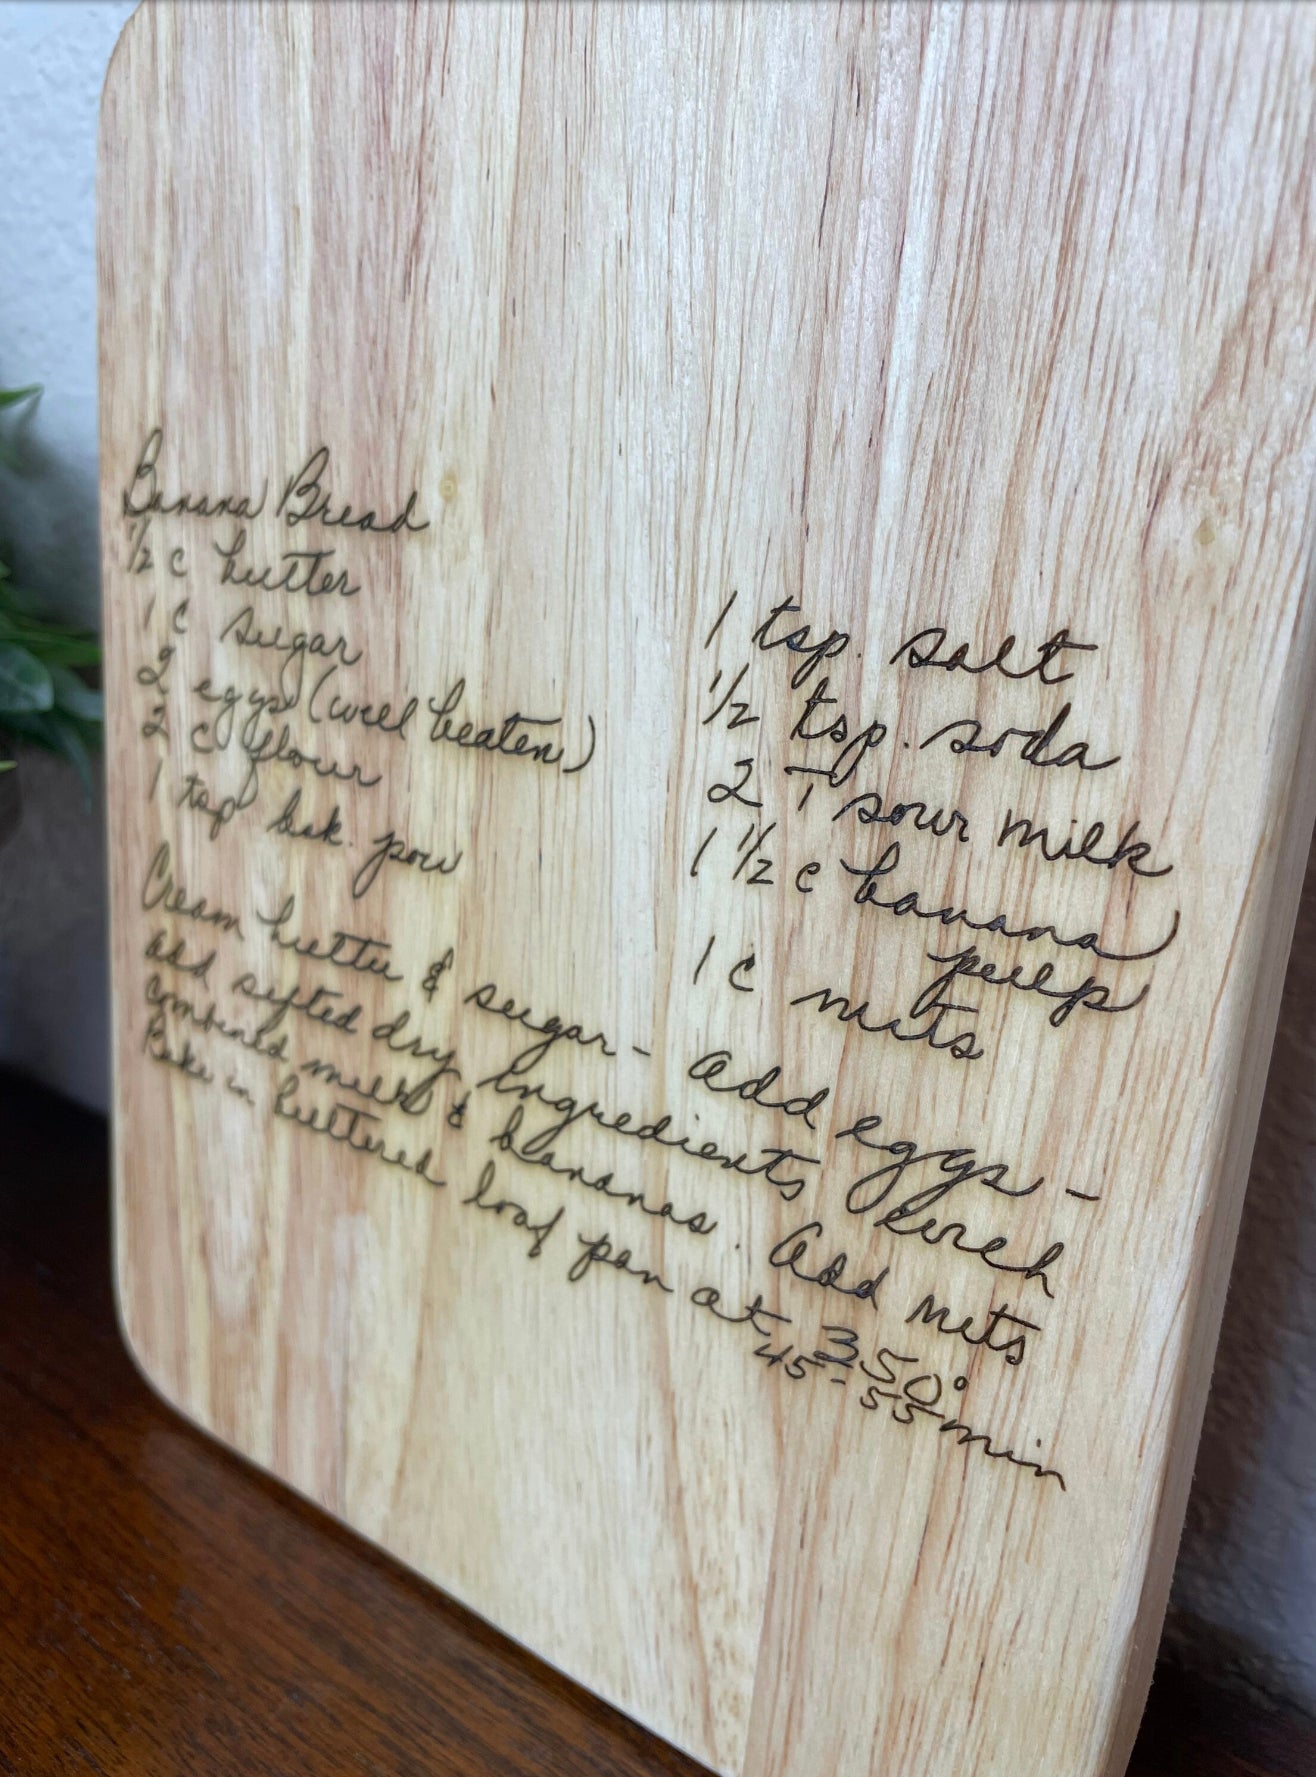 Banana Bread
1/2 c butter
1 c sugar
2 eggs (well beaten)
2 c flour
1 tsp bak. pow
1 tsp. salt
1/2 tsp. soda
2 T sour milk
1 1/2 c banana
pulp
1 c nuts
Cream butter & sugar - add eggs -
add sifted dry ingredients with
combined milk & bananas. Add nuts
Bake in buttered loaf pan at 350°
45-55 min